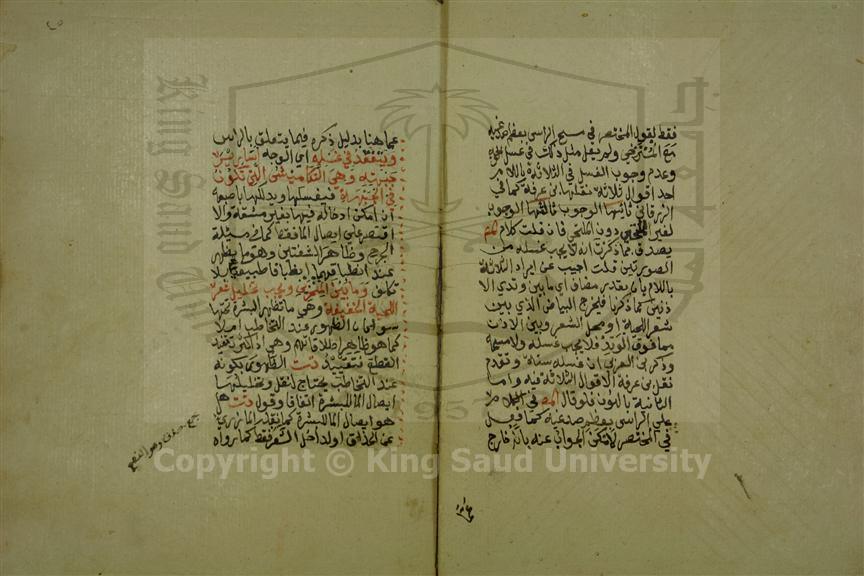 فقط لقول المختصر في مسح الراس بعظم صدغيه
مع المسترخي ولم يقل مثل ذلك في غسل
وعدم وجوب الغسل في الثلاثة باللام
احد اقوال ثلاثة نقلها ابن عرفة كما في
الزرقاني ثانيها الوجوب ثالثها الوجوب
لغير دون الملتحي فان قلت كلام
يصدق بما ذكرنا انه لا يجب غسله من
الصورتين قلت اجيب عن ايراد الثلاثة
باللام بان يقدر مضاف اي ما بين وتدي الا
ذنين كما ذكرنا فيخرج البياض الذي بين
شعر اللحية او محل الشعر وبين الاذن
مما فوق الوتد فلا يجب غسله ولا مسحه
وذكر ابن العربي ان غسله سنة وتقدم
نقل ابن عرفة الاقوال الثلاثة فيه واما
الثانية بالنون فلو قال في
على الراس بعظم صدغيه كما فعل
في المختصر لامكن الجواب عنه بانه خارج
عما هنا بدليل ذكره فيما يتعلق بالراس
ويتفقد في غسله اي الوجه اسارير
جبهته وهي التكاميش التي تكون
في الجبهة فيغسلها ويدلكها باصبعه
ان امكن ادخاله فيها بغير مشقة والا
اقتصر على ايصال الماء فقط كما في مسئلة
الجرح وظاهر الشفتين وهو ما يظهر
عند انطباقهما انطباقا طبيعيا بلا
تكلف وما بين المنخرين ويجب تخليل شعر
اللحية الخفيفة وهي ما تظهر البشرة تحتها
سواء كان الظهور عند التخاطب ام لا
كما هو ظاهر اطلاقاتهم وهي اذ ذاك تفيد
القطة فتقييد تت الظهور بكونه
عند التخاطب يحتاج لنقل وتخليلها
ايصال الماء للبشرة اتفاقا وقول تت هل
هو ايصال الماء للبشرة كما نقله المازري
عن الحذاق او لداخل الشعر فقط كما رواه